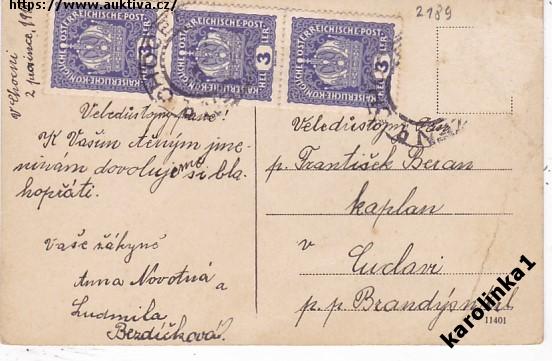 https://www.auktiva.cz/
2189
KAISERLICHE KÖNIGLICHE ÖSTERREICHISCHE POST
3 HELLER 3
KAISERLICHE KÖNIGLICHE ÖSTERREICHISCHE POST
3 HELLER 3
KAISERLICHE KÖNIGLICHE ÖSTERREICHISCHE POST
3 HELLER 3
v Chocni
2 prosince
Veledůstojný Pane!
K Vašim ctěným jme-
ninám dovolujeme si bla-
hopřáti.
Vaše žákyně
Anna Novotná
a
Ludmila
Bezdíčková
Veledůstojný Pán
p. František Beran
kaplan
v
Čudavi
p. p. Brandýs
11401
karolinka1